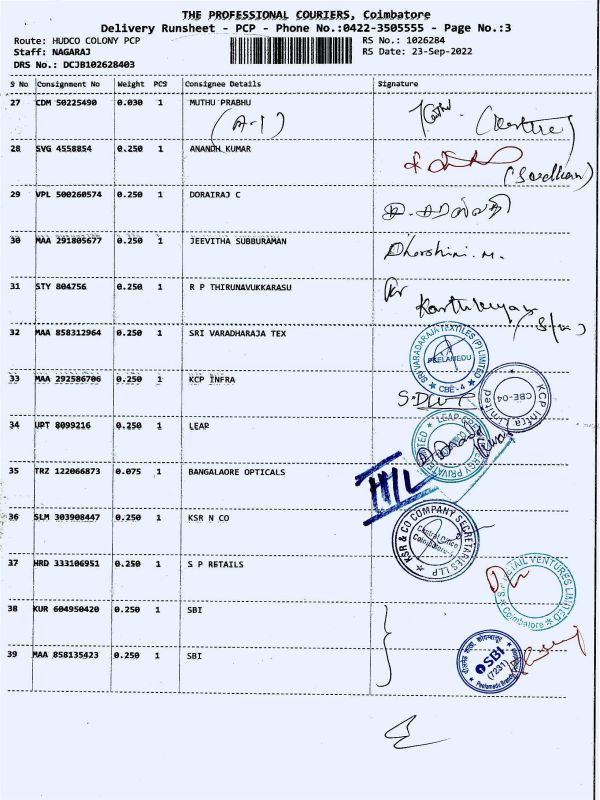 THE PROFESSIONAL COURIERS, Coimbatore
Delivery Runsheet - PCP - Phone No.:0422-3505555 - Page No.:3
Route: HUDCO COLONY PCP RS No.: 1026284
Staff: NAGARAJ RS Date: 23-Sep-2022
DRS No.: DCJB102628403
S No Consignment No Weight PCS Consignee Details Signature
27 CDM 50225490 0.030 1 MUTHU PRABHU
(A-1)
28 SVG 4558854 0.250 1 ANANDH KUMAR
29 VPL 500260574 0.250 1 DORAIRAJ C
30 MAA 291805677 0.250 1 JEEVITHA SUBBURAMAN
Dharshini. M.
31 STY 804756 0.250 1 R P THIRUNAVUKKARASU
32 MAA 858312964 0.250 1 SRI VARADHARAJA TEX
SRI VARADARAJA TEXTILES (P) LIMITED
PEELAMEDU
CBE - 4
33 MAA 292586706 0.250 1 KCP INFRA
KCP Infra Limited
CBE-04
34 UPT 8099216 0.250 1 LEAP
35 TRZ 122066873 0.075 1 BANGALAORE OPTICALS
36 SLM 303908447 0.250 1 KSR N CO
KSR & CO COMPANY SECRETARIES LLP
Coimbatore
37 HRD 333106951 0.250 1 S P RETAILS
RETAIL VENTURES LIMITED
Coimbatore
38 KUR 604950420 0.250 1 SBI
39 MAA 858135423 0.250 1 SBI
SBI
(7231)
Peelamedu Branch